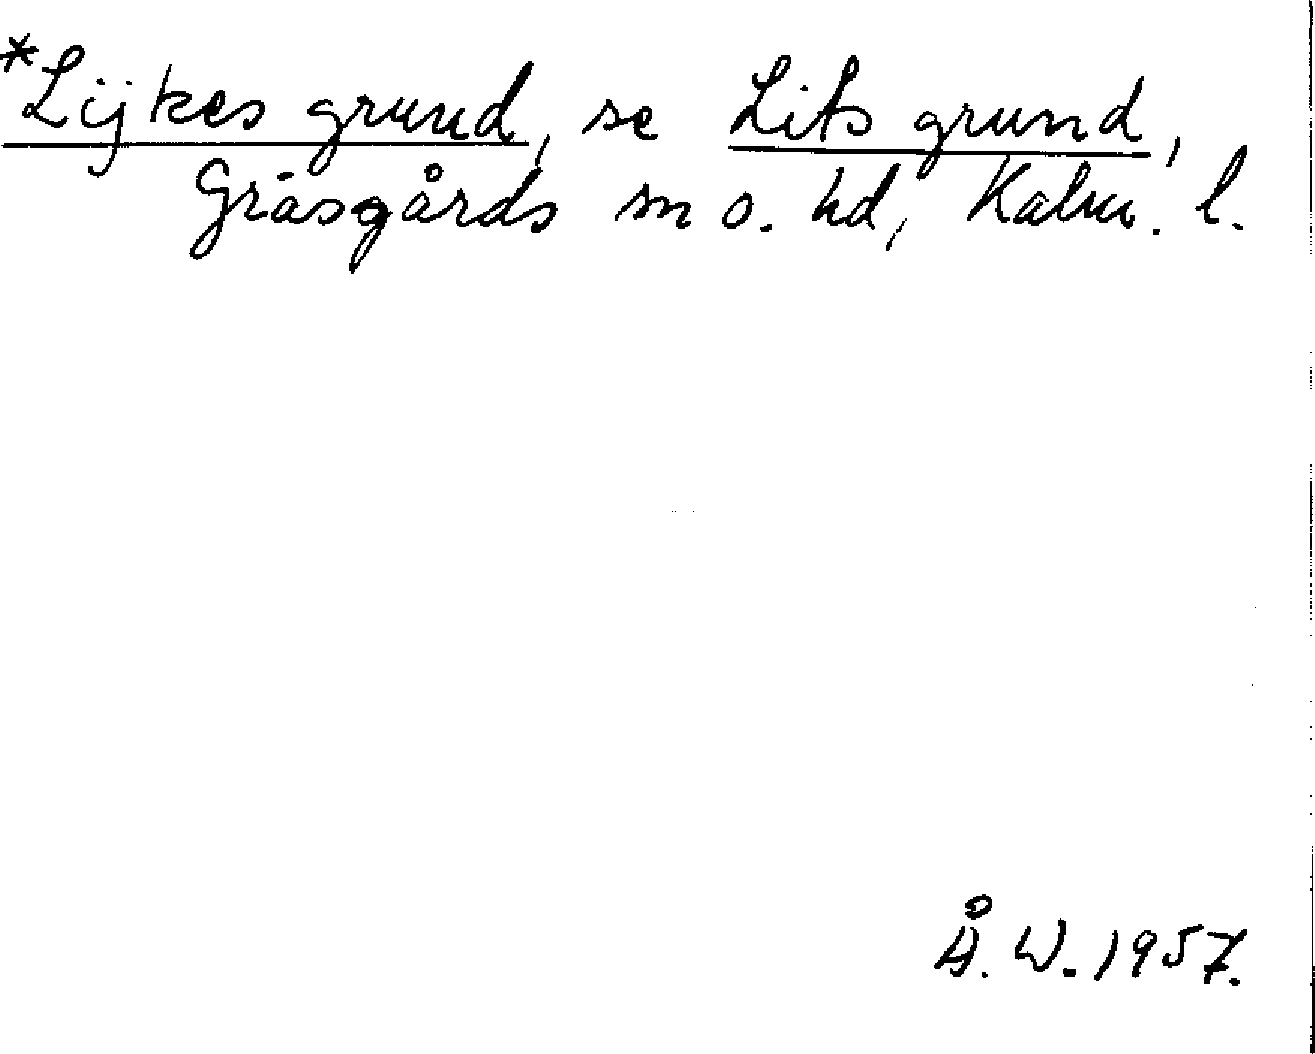 *Lijkes grund, se Liks grund,
Gräsgårds sn o. hd, Kalm. l.
Å. W. 1957.